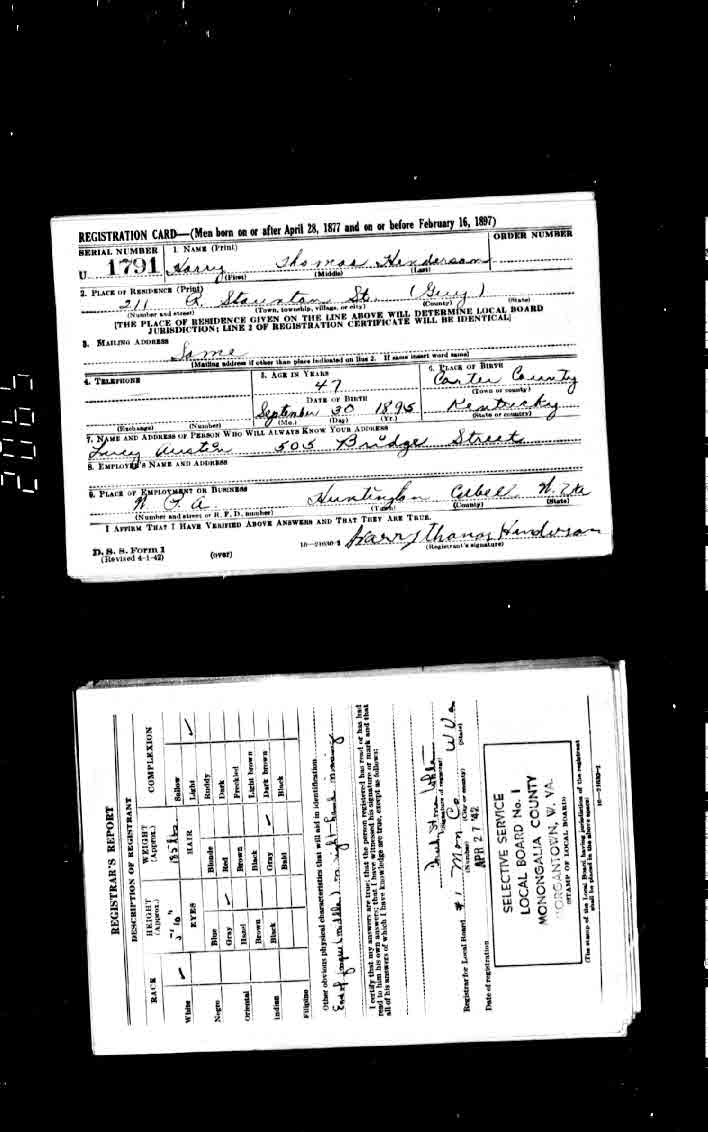 REGISTRATION CARD—(Men born on or after April 28, 1877 and on or before February 16, 1897)
SERIAL NUMBER 1. NAME (Print) ORDER NUMBER
U 1791 Harry Thomas Henderson
(First) (Middle) (Last)
2. PLACE OF RESIDENCE (Print)
211 St.
(Number and street) (Town, township, village, or city) (County) (State)
[THE PLACE OF RESIDENCE GIVEN ON THE LINE ABOVE WILL DETERMINE LOCAL BOARD
JURISDICTION; LINE 2 OF REGISTRATION CERTIFICATE WILL BE IDENTICAL]
3. MAILING ADDRESS
Same
[Mailing address if other than place indicated on line 2. If same insert word same]
4. TELEPHONE 5. AGE IN YEARS 6. PLACE OF BIRTH
47 Carter County
DATE OF BIRTH (Town or county)
September 30 1895 Kentucky
(Exchange) (Number) (Mo.) (Day) (Yr.) (State or country)
7. NAME AND ADDRESS OF PERSON WHO WILL ALWAYS KNOW YOUR ADDRESS
Lucy Austin 505 Bridge Street
8. EMPLOYER'S NAME AND ADDRESS
9. PLACE OF EMPLOYMENT OR BUSINESS
W. P. A. Huntington Cabell W. Va
(Number and street or R. F. D. number) (Town) (County) (State)
I AFFIRM THAT I HAVE VERIFIED ABOVE ANSWERS AND THAT THEY ARE TRUE.
D. S. S. Form 1
(Revised 4-1-42) (over) 16—21630-2 Harry Thomas Henderson
(Registrant's signature)
REGISTRAR'S REPORT
DESCRIPTION OF REGISTRANT
RACE HEIGHT (Approx.) WEIGHT (Approx.) COMPLEXION
5' 10" 185 lbs Sallow
White ✓ EYES HAIR Light ✓
Blue Blonde Ruddy
Negro Gray ✓ Red Dark
Hazel Brown Freckled
Oriental Brown Black Light brown
Black Gray ✓ Dark brown
Indian Bald Black
Filipino
Other obvious physical characteristics that will aid in identification
End of finger (middle) on right hand missing
I certify that my answers are true; that the person registered has read or has had
read to him his own answers; that I have witnessed his signature or mark and that
all of his answers of which I have knowledge are true, except as follows:
(Signature of registrar)
Registrar for Local Board #1 Mon Co W Va
(Number) (City or county) (State)
Date of registration APR 27 '42
SELECTIVE SERVICE
LOCAL BOARD No. 1
MONONGALIA COUNTY
MORGANTOWN, W. VA.
(STAMP OF LOCAL BOARD)
(The stamp of the Local Board having jurisdiction of the registrant
shall be placed in the above space)